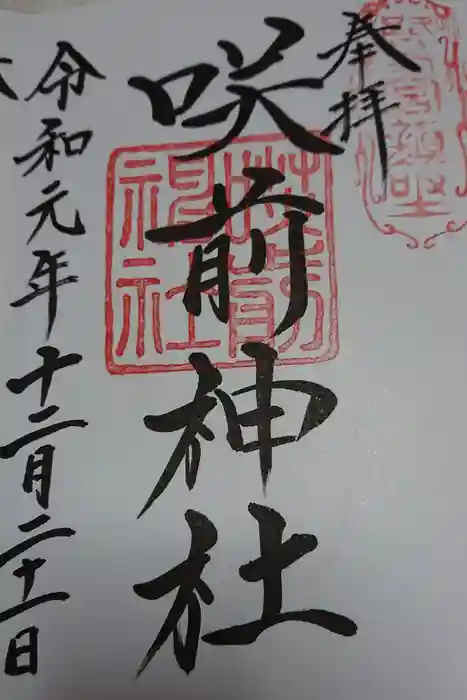 奉拝
咲前神社
令和元年十二月二十一日
咲前神社